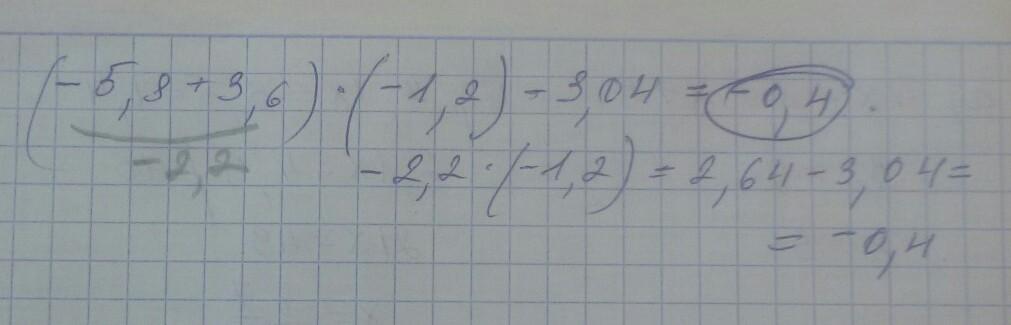 (-5,8+3,6)·(-1,2)-3,04=-0,4.
-2,2 -2,2·(-1,2)=2,64-3,04=
=-0,4